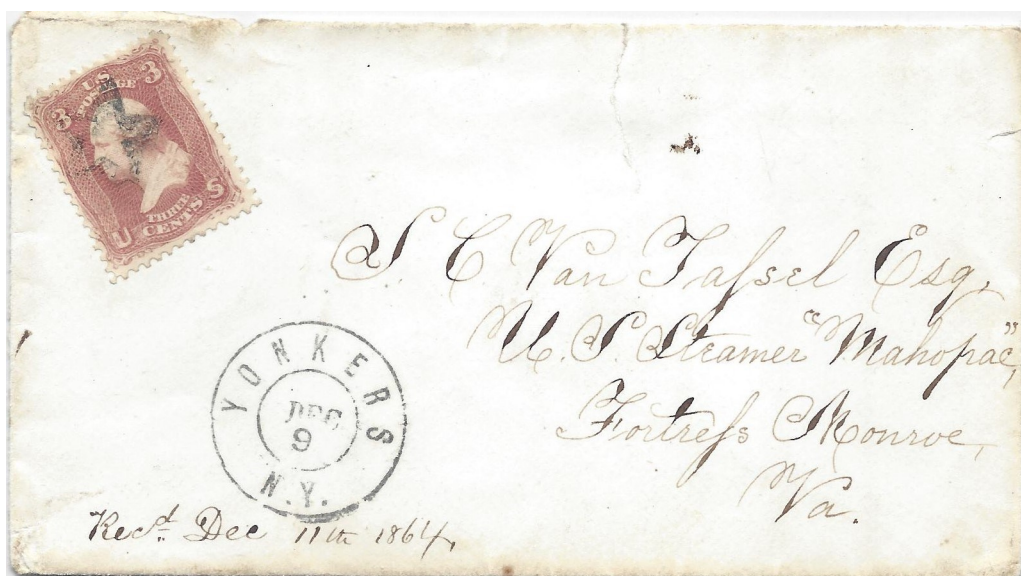 3 U.S. POSTAGE 3
U THREE CENTS S
S. C. Van Taſsel Esq.
U. S. Steamer "Mahopac",
Fortreſs Monroe,
Va.
YONKERS
DEC
9
N.Y.
Recd. Dec 11th 1864.